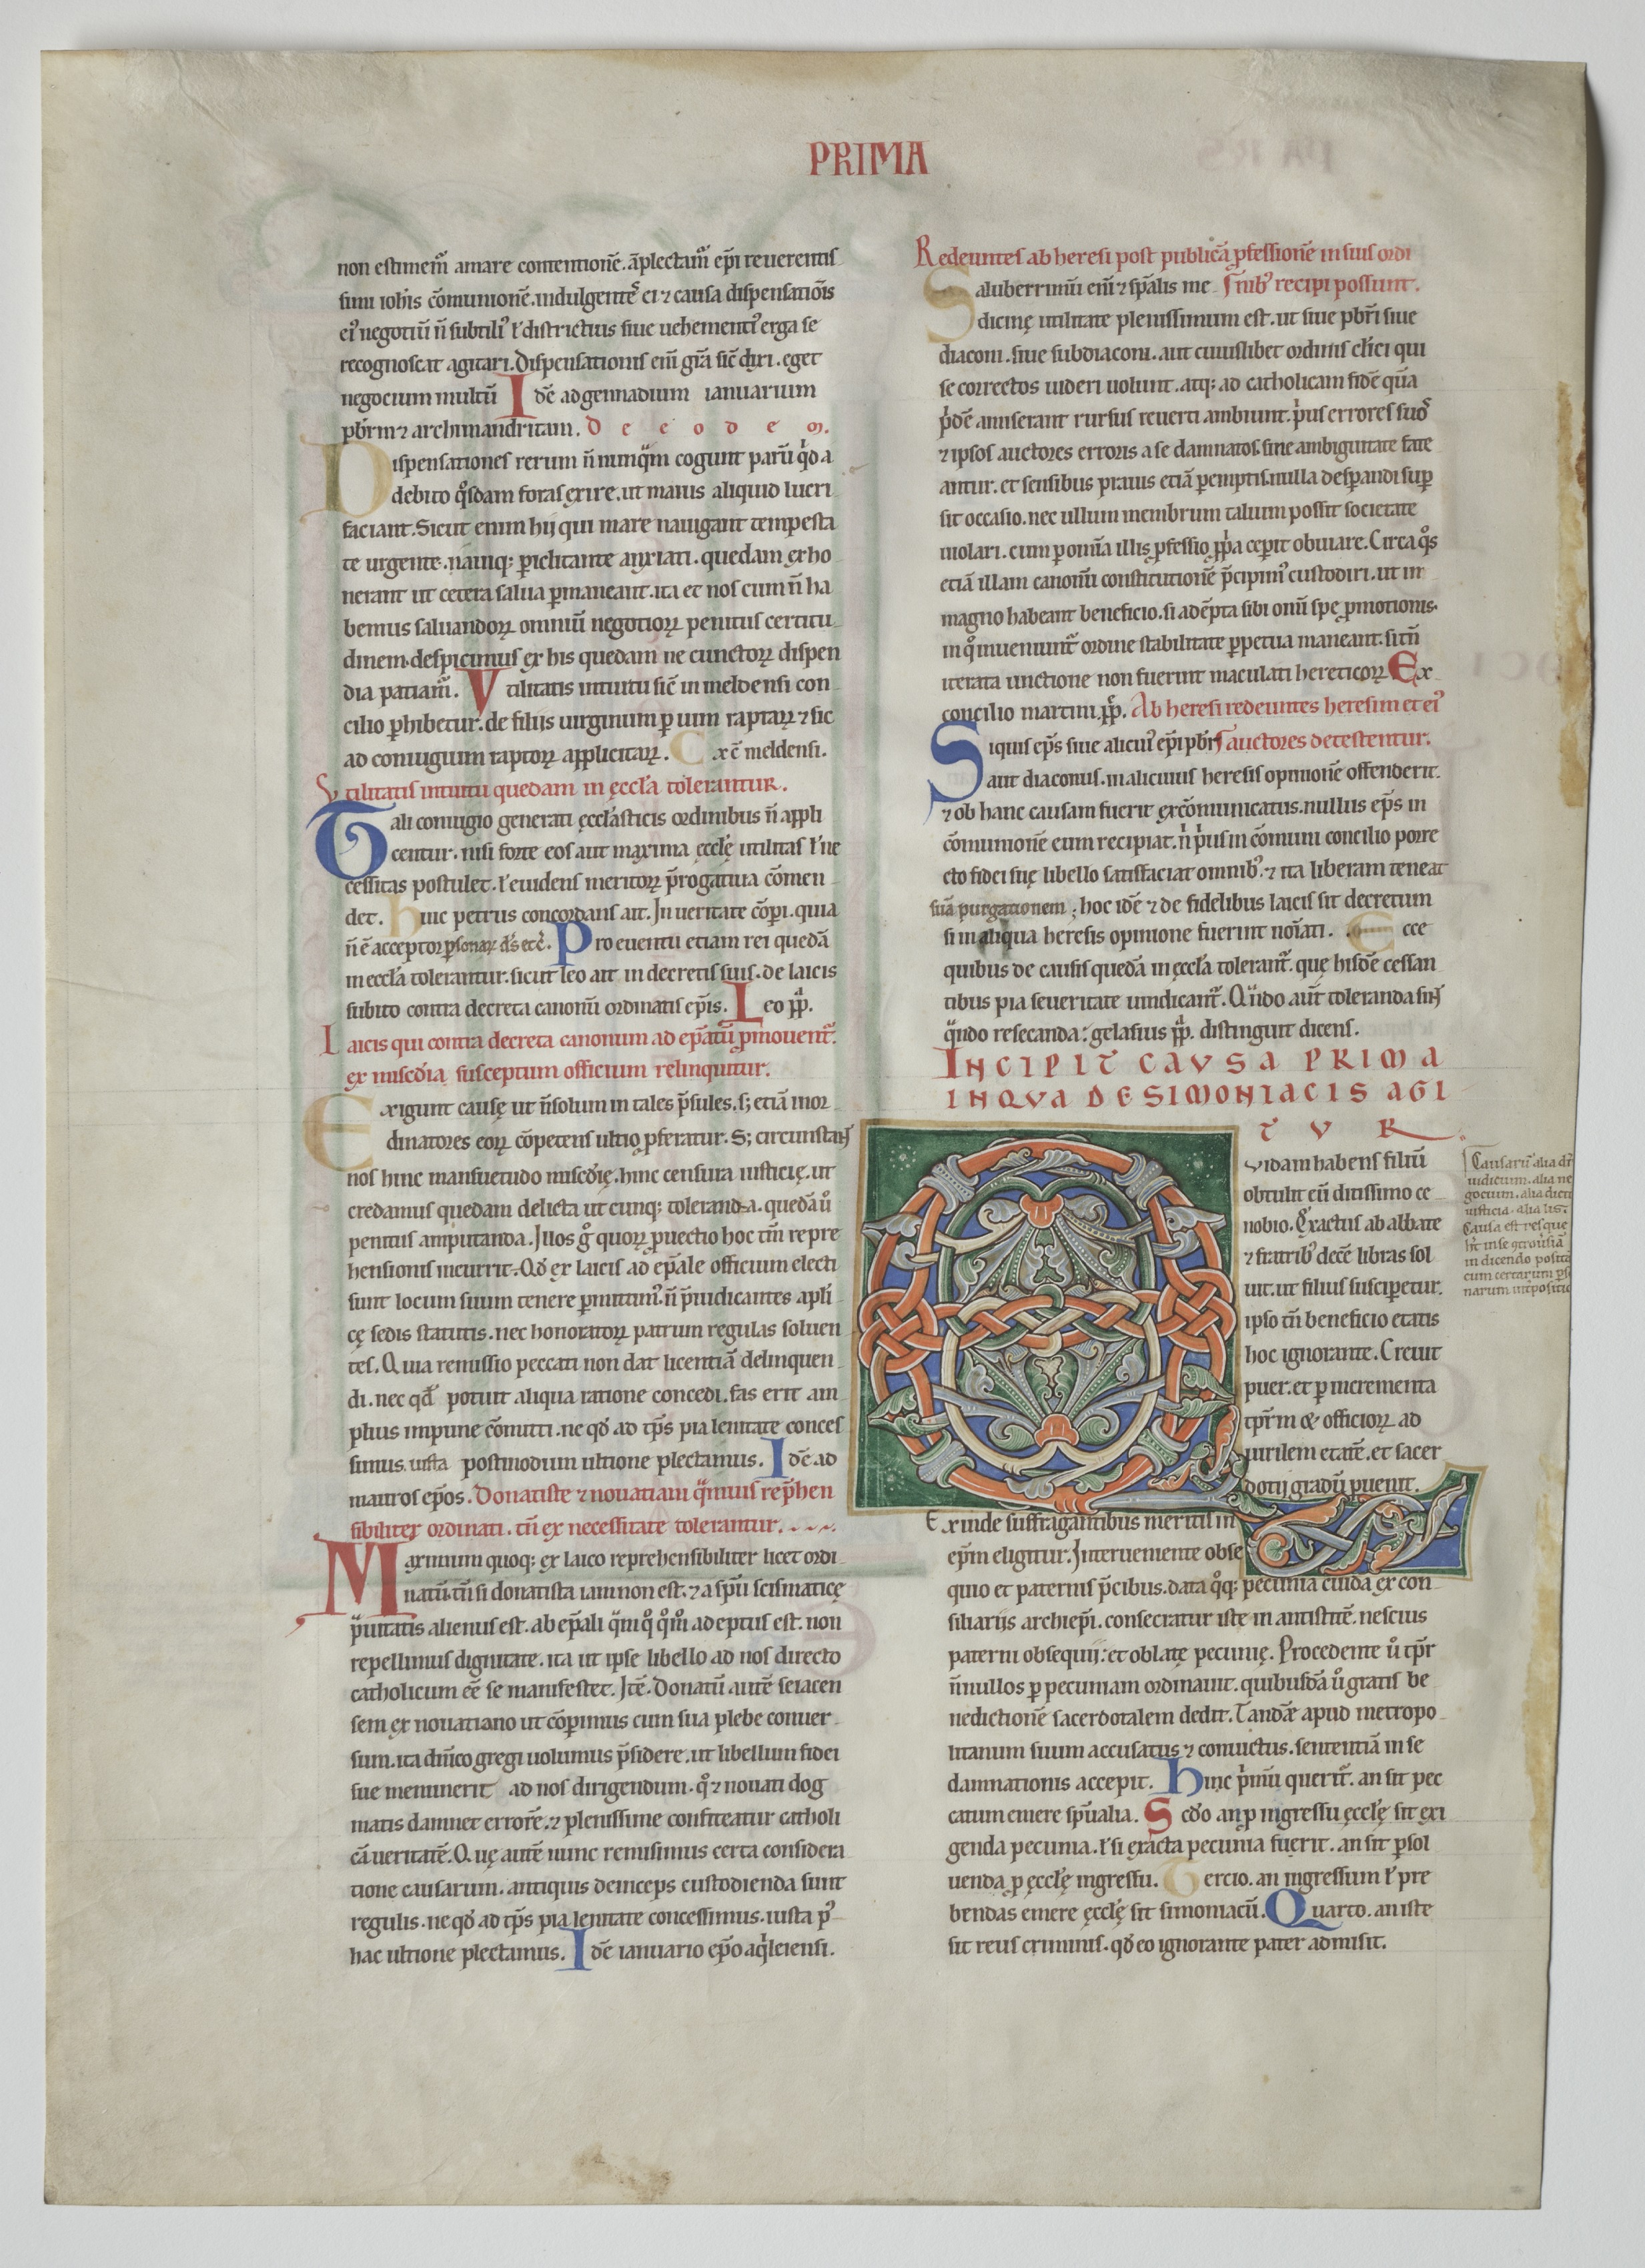 PRIMA
non estimem̃ amare contentionẽ. ãplectam̃ ep̃i reuerentis
simi ioh̃is cõmunionẽ. indulgentẽ ei ⁊ causa dispensatiõis
ei᾽ negotiũ ñ subtili᾽ ł districtius siue uehementi᾽ erga se
recognoscit agitari. Dispensationis eni᷒ gr̃a sic̃ dix̃i. eget
negocium multũ Idẽ ad gennadium ianuarium
pbr̃m ⁊ archimandritam. De eodem.
Dispensationes rerum ñ nunq̃m cogunt parũ q̃da
debito q̊sdam foras exire. ut maius aliquid lucri
faciant. Sicut enim hij qui mare nauigant tempesta
te urgente. nauiq; p̱iclitante anxiati. quedam exho
nerant ut cetera salua p̱maneant. ita et nos cum ñ ha
bemus saluandoꝝ omniũ negotioꝝ penitus certitu
dinem. despicimus ex his quedam ne cunctoꝝ dispen
dia patiam̃. Vtilitatis intuitu sic̃ in meldensi con
cilio p̱hibetur. de filiis uirginum p̱ uim raptaꝝ ⁊ sic
ad coniugium raptoꝝ applicitaꝝ. Ex c̃ meldensi.
Vtilitatis intuitu quedam in ęccl̃a tolerantur.
Tali coniugio generati ęccl̃asticis ordinibus ñ appli
centur. nisi forte eos aut maxima ęccl̃ę utilitas ł ne
cessitas postulet. ł euidens meritoꝝ p̃rogatiua cõmen
det. huic petrus concordans ait. In ueritate cõp̱i. quia
ñ ẽ acceptor p̱sonaꝝ d̃s etc̃. Pro euentu etiam rei quedã
in eccl̃a tolerantur. sicut leo ait in decretis suis. de laicis
subito contra decreta canonũ ordinatis ep̃is. Leo p̃p̃.
Laicis qui contra decreta canonum ad ep̃atũ p̱mouent᷒.
ex mis̃c̃dia susceptum officium relinquitur.
Exigunt causę ut ñ solum in tales p̃sules. s; etiã in or
dinatores eoꝝ cõpetens ultio p̱feratur. S; circumstañ
nos hinc mansuetudo mis̃c̃dię. hinc censura iusticię. ut
credamus quedam delicta ut cunq; toleranda. quedã ů
penitus amputanda. Illos g̊ quoꝝ p̱uectio hoc tm̃ repre
hensionis incurrit. Qd̃ ex laicis ad ep̃ale officium electi
sunt locum suum tenere p̱mittim᾽. ñ p̃iudicantes apl̃i
cę sedis statutis. nec honoratoꝝ patrum regulas soluen
tes. Quia remissio peccati non dat licentiã delinquen
di. nec qd̃ potuit aliqua ratione concedi. fas erit am
plius impune cõmitti. ne qd̃ ad tp̃s pia lenitate conces
simus. iusta postmodum ultione plectamus. Idẽ ad
mauros ep̃os. Donatiste ⁊ nouatiani q̃muis rep̱hen
sibiliter ordinati. tñ ex necessitate tolerantur.
Maximum quoq; ex laico reprehensibiliter licet ordi
natũ. tñ si donatista iam non est. ⁊ a sp̃u scismaticę
p̃uitatis alienus est. ab ep̃ali q̃m q̊ q̊m̊ adeptus est. non
repellimus dignitate. ita ut ipse libello ad nos directo
catholicum eẽ se manifestet. Itẽ. Donatũ autẽ seiacen
sem ex nouatiano ut cõp̱imus cum sua plebe conuer
sum. ita dñico gregi uolumus p̃sidere. ut libellum fidei
sue meminerit ad nos dirigendum. q̊ ⁊ nouati dog
matis damnet errorẽ. ⁊ plenissime confiteatur catholi
cã ueritatẽ. Quę autẽ nunc remisimus certa considera
tione causarum. antiquis deinceps custodienda sunt
regulis. ne qd̃ ad tp̃s pia lenitate concessimus. iusta p᾽
hac ultione plectamus. Idẽ ianuario ep̃o aq̃leiensi.
Redeuntes ab heresi post publicã p̱fessionẽ in suis ordi
Saluberrimũ eni᷒ ⁊ sp̃alis me nib᾽ recipi possunt.
dicinę utilitate plenissimum est. ut siue pbr̃i siue
diaconi. siue subdiaconi. aut cuiuslibet ordinis cl̃ici qui
se correctos uideri uolunt. atq; ad catholicam fidẽ q̃ua
p̃dẽ amiserant rursus reuerti ambiunt. p̃us errores suos
⁊ ipsos auctores erroris a se damnatos. sine ambiguitate fate
antur. et sensibus prauis etiã p̱emptis. nulla desp̱andi sup̱
sit occasio. nec ullum membrum talium possit societate
uiolari. cum p̱ omĩa illis p̱fessio p̱p̃a cepit obuiare. Circa q̊s
etiã illam canonũ constitutionẽ p̃cipim᾽ custodiri. ut in
magno habeant beneficio. si adẽpta sibi omĩ spe p̱motionis.
in q̊ inueniunt᷒ ordine stabilitate p̱petua maneant. si tñ
iterata unctione non fuerint maculati hereticoꝝ Ex
concilio martini p̃p̃. Ab heresi redeuntes heresim et ei᾽
Siquis ep̃s siue alicui᾽ ep̃i pbr̃ auctores detestentur.
aut diaconus. in alicuius heresis opinionẽ offenderit.
⁊ ob hanc causam fuerit excõmunicatus. nullus ep̃s in
cõmunionẽ eum recipiat. n̊ p̃us in cõmuni concilio porre
cto fidei suę libello satisfaciat omnib᾽. ⁊ ita liberam teneat
suã purgationem; hoc idẽ ⁊ de fidelibus laicis sit decretum
si in aliqua heresis opinione fuerint noĩati. Ecce
quibus de causis quedã in eccl̃a tolerant᷒. quę hisdẽ cessan
tibus pia seueritate uindicant᷒. Q̃ndo aut̃ toleranda sint
q̃ndo resecanda: gelasius p̃p̃. distinguit dicens.
INCIPIT CAVSA PRIMA
IN QVA DE SIMONIACIS AGI
TVR
Quidam habens filiũ
obtulit eũ ditissimo ce
nobio. Exactus ab abbate
⁊ fratrib᾽ decẽ libras sol
uit. ut filius suscip̱etur.
ipso tñ beneficio etatis
hoc ignorante. Creuit
puer. et p̱ incrementa
tp̃r̃m & officioꝝ ad
uirilem etatẽ. et sacer
dotij gradũ p̱uenit.
Exinde suffragantibus meritis in
ep̃m eligitur. Interueniente obse
quio et paternis p̃cibus. data q̊q; pecunia cuidã ex con
siliariis archiep̃i. consecratur iste in antistitẽ. nescius
paterni obsequij: et oblatę pecunię. Procedente ů tp̃r
ñnullos p̱ pecuniam ordinauit. quibusdã ů gratis be
nedictionẽ sacerdotalem dedit. Tandẽ apud metropo
litanum suum accusatus ⁊ conuictus. sententiã in se
damnationis accepit. hinc p̃mũ querit᷒. an sit pec
catum emere sp̃ualia. Scd̃o an p̱ ingressu ęccl̃ę sit exi
genda pecunia. ł si exacta pecunia fuerit. an sit p̱sol
uenda p̱ ęccl̃ę ingressu. Tercio. an ingressum ł pre
bendas emere ęccl̃ę sit simoniacũ. Quarto. an iste
sit reus criminis. qd̃ eo ignorante pater admisit.
Causarũ alia dr̃
iudicium. alia ne
gocium. alia dicit
iusticia. alia lis:
Causa est res que
h̃t in se ꝯtrouersiã
in dicendo positã
cum certarum p̱so
narum int̃positio